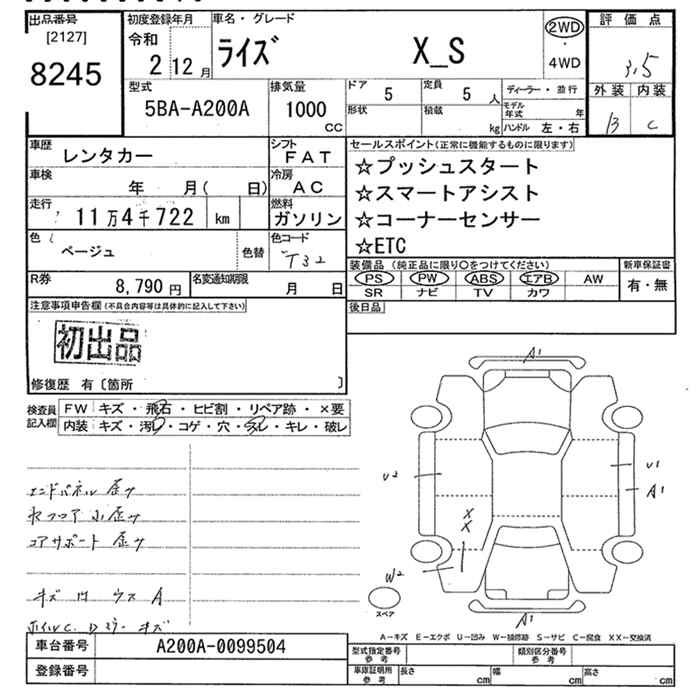 出品番号
[2127]
8245
初度登録年月
令和
2 12月
車名・グレード
ライズ X_S
2WD
・
4WD
評価点
3.5
外装 内装
B C
型式
5BA-A200A
排気量
1000
CC
ドア
5
定員
5 人
形状
積載
kg
ディーラー・並行
モデル年式 年
ハンドル 左・右
車歴
レンタカー
シフト
FAT
車検
年 月( 日)
冷房
AC
走行
11万4千722 km
燃料
ガソリン
色
ベージュ
色替
色コード
T32
R券
8,790円
名変通知期限
月 日
セールスポイント(正常に機能するものに限ります)
☆プッシュスタート
☆スマートアシスト
☆コーナーセンサー
☆ETC
装備品(純正品に限り○をつけてください)
新車保証書
PS PW ABS エアB AW
有・無
SR ナビ TV カワ
後日品
注意事項申告欄(不具合内容等は具体的に記入して下さい)
初出品
修復歴 有〔箇所 〕
検査員記入欄
FW キズ・飛石・ヒビ割・リペア跡・×要
内装 キズ・汚れ・コゲ・穴・スレ・キレ・破レ
エンドパネル 歪サ
コアサポート 歪サ
キズ 凹 ウス A
ホイルC. Dミラー キズ
A1
U2
U1
A1
X
X
W2
A1
スペア
A-キズ E-エクボ U-凹み W-補修跡 S-サビ C-腐食 XX-交換済
車台番号
A200A-0099504
登録番号
型式指定番号
参考
類別区分番号
参考
車庫証明用
参考
長さ cm
幅 cm
高さ cm